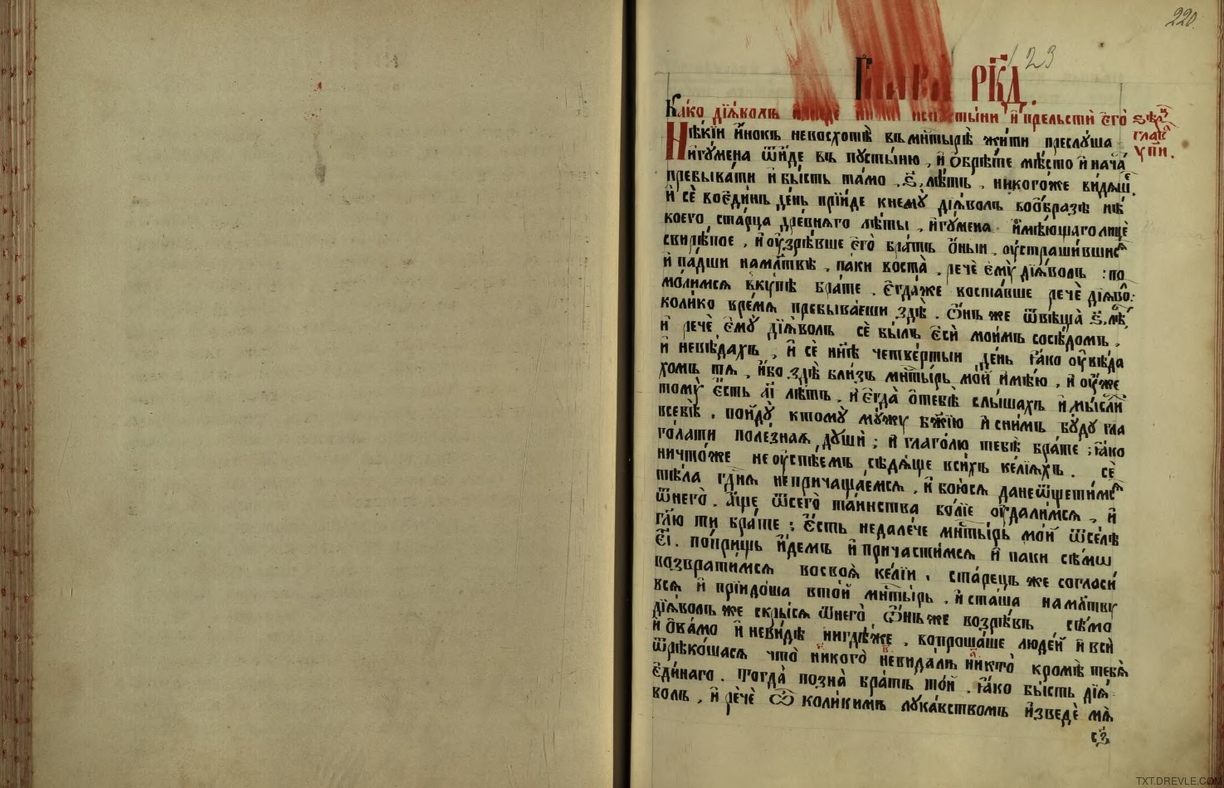 220
123
Глава рк҃д.
Ка́ко дїѧ́волъ прїиде ино́ку испꙋсты́ни и҆ прельсти̂ є҆го̀
глав̾
Нѣ́кїй и҆́нокъ невосхотѣ̀ въ мн҃тырѣ̀ жи́ти преслꙋша
и҆гꙋмена ѿи́де въ пꙋсты́ню , и҆ ѻ҆брѣ́те мѣ́сто и҆ нача̀
пребыва́ти и҆ бы́сть та́мо .ѕ҃. лѣ́тъ . никого́же ви́дѧщ̾.
и҆ сѐ воє҆ди́нъ де́нь прїи́де кнемꙋ̀ дїѧ́волъ воѻ҆бразѣ нѣ
коего ста́рца дре́внѧго лѣ́ты , и҆гꙋмена и҆мѣ́ющаго лицѐ
свирѣ́пое , и҆ ѹ҆зрѣ́вше є҆го̀ бра́тъ ѻ҆́ныи . ѹ҆страши́вшисѧ
и҆ па́дши намл҃твѣ , паки воста̀ . речѐ є҆мꙋ̀ дїѧ́волъ : по
мо́лимсѧ вкꙋ́пѣ бра́те . є҆гда́же воста́вше речѐ дїѧ́во:
коли́ко вре́мѧ пребыва́еши здѣ̀ . ѻ҆́нъ же ѿвѣща̀ .ѕ҃. лѣ̾
и҆ речѐ є҆мꙋ̀ дїѧ́волъ сѐ бы́лъ є҆сѝ мои́мъ сосѣ́домъ .
и҆ невѣ́дахъ , и҆ сѐ нн҃ѣ четве́ртыи де́нь ꙗ҆́ко ѹ҆вѣ́да
хомъ тѧ̀ . и҆́бо здѣ̀ бли́зъ мн҃ты́рь мо́й и҆мѣ́ю , и҆ ѹ҆же
томꙋ̀ є҆́сть а҃і лѣ́тъ . и҆ є҆гда̀ ѻ҆тебѣ̀ слы́шахъ и҆ мы́сли́
всебѣ̀ . пойдꙋ̀ ктомꙋ̀ мꙋ́жꙋ бж҃їю и҆ сни́мъ бꙋ́дꙋ гла
го́лати поле́знаѧ дꙋшѝ ; и҆ глаго́лю тебѣ̀ бра́те : ꙗ҆́ко
ничто́же неѹ҆спѣ́емъ сѣдѧ́ще всихъ ке́лїѧхъ . сѐ
тѣ́ла гд҃нѧ непричаща́емсѧ . и҆ бою́сѧ данеѿщети́мсѧ
ѿнего̀ . а҆́ще ѿсего̀ та́инства бо́лїе ѹ҆дали́мсѧ , и҆
гл҃ю ти бра́те : є҆́сть недале́че мн҃ты́рь мо́й ѿсе́лѣ
є҃і. по́прищь и҆́демъ и҆ причасти́мсѧ и҆ паки сѣ́мѡ
возврати́мсѧ восвоѧ̀ ке́лїи . ста́рецъ же согласи́
всѧ̀ и҆ прїидо́ша вто́й мн҃ты́рь . и҆ ста́ша намл҃твꙋ
дїѧ́волъ же скры́сѧ ѿнего̀ , ѻ҆́нъ же возрѣ́въ сѣ́мо
и҆ ѻ҆ва́мо и҆ неви́дѣ нигдѣ́же . вопроша́ше люде́й и҆ всѝ
ѿреко́шасѧ что̀ никого̀ невида́лъ никто̀ кро́мѣ тебѧ̀
є҆ди́наго . Тогда̀ позна̀ бра́тъ то́й . ꙗ҆́ко бы́сть дїѧ́
волъ , и҆ рече̂ ѽ коли́кимъ лꙋка́вствомъ и҆зведѐ мѧ̀
TXT.DREVLE.COM